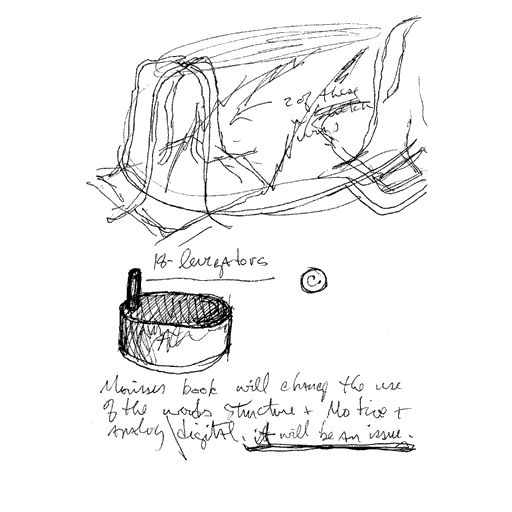 2 of these
18- levigators
©
Mourises book will change the use
of the words structure + Motive +
analog/digital. it will be an issue.